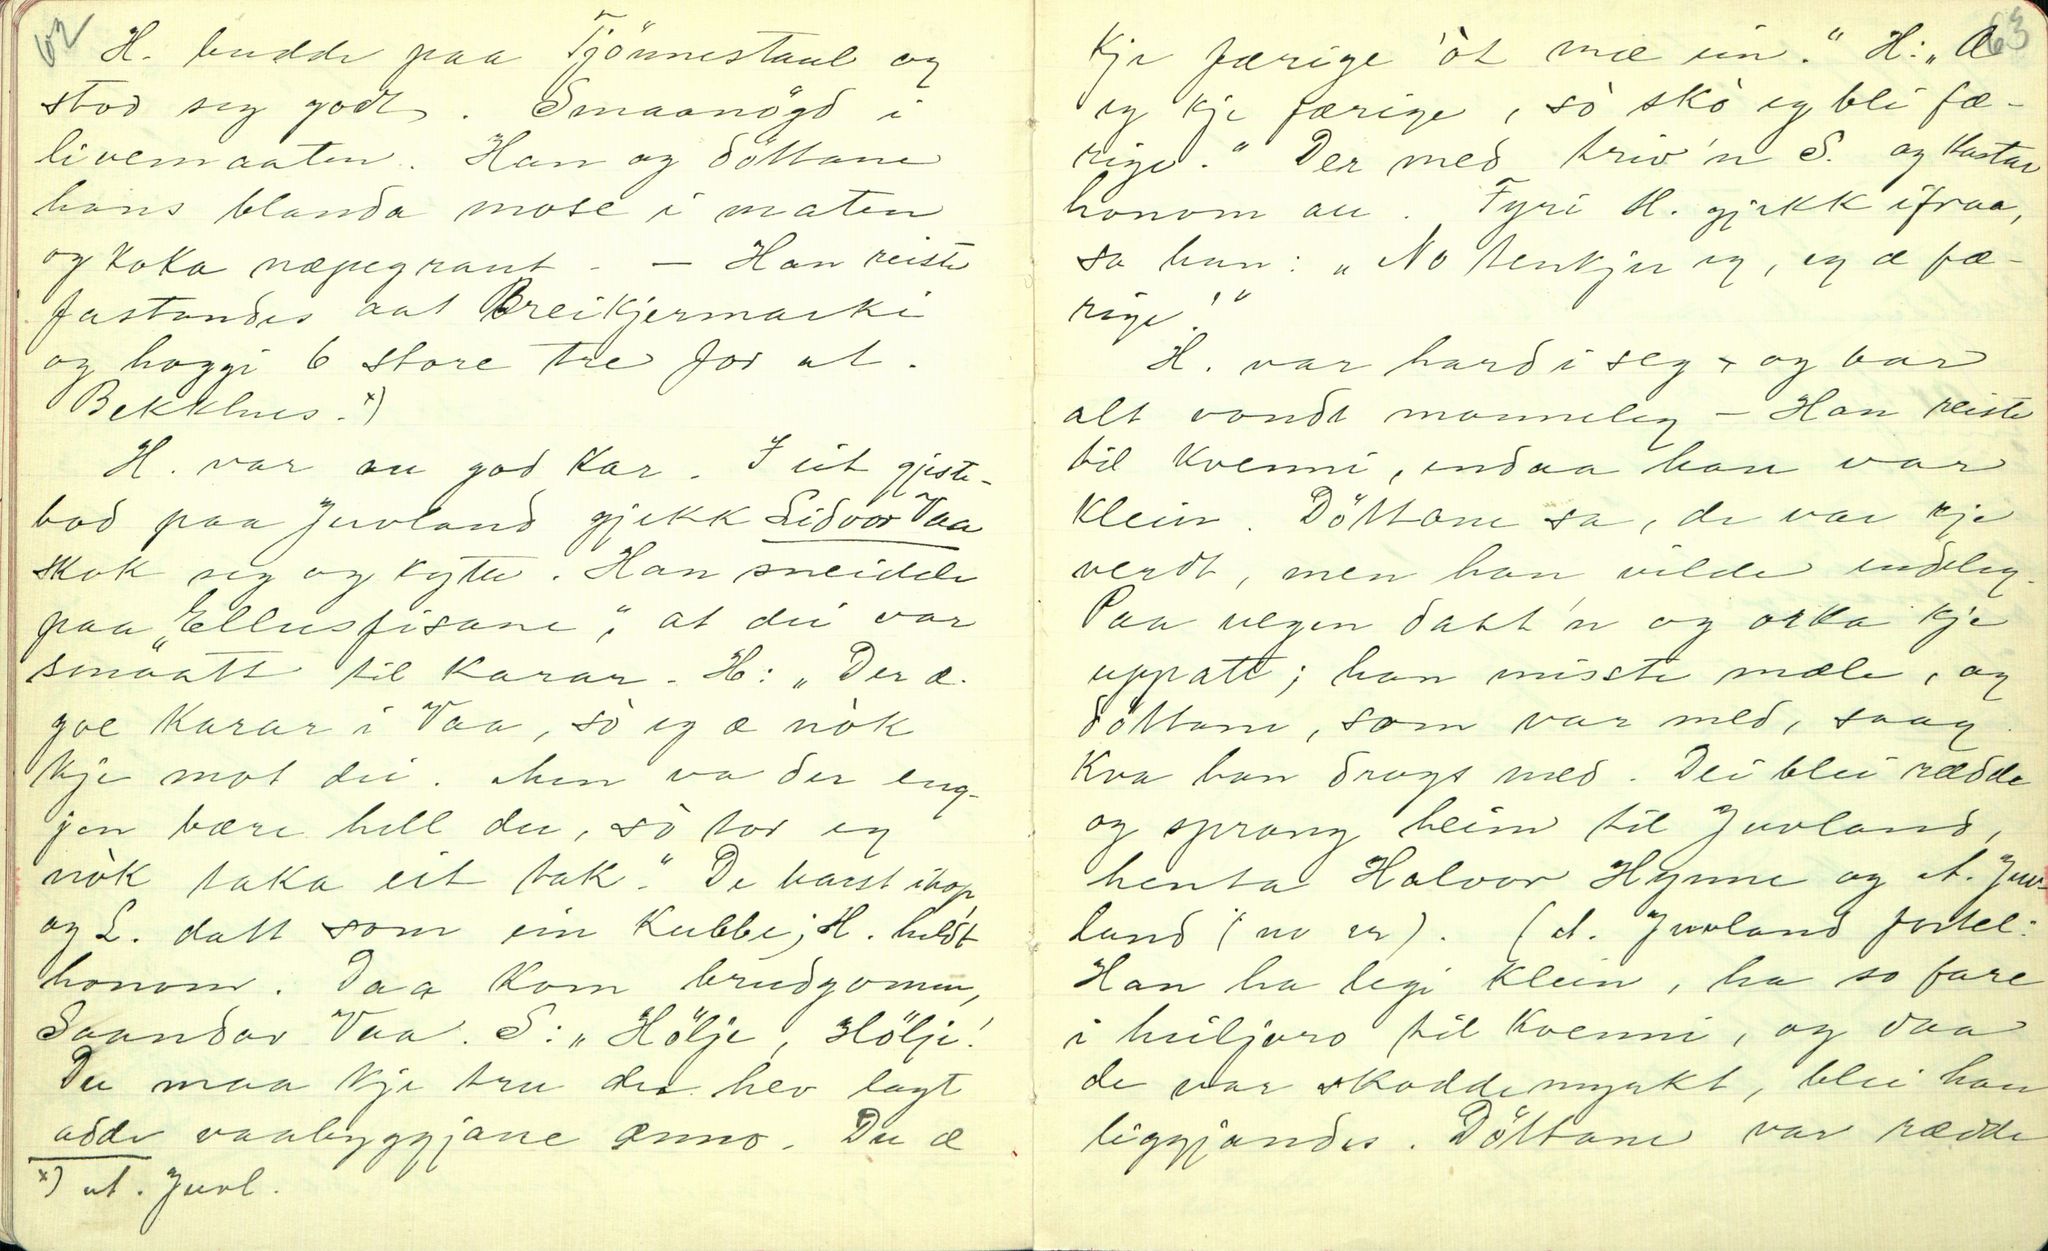 62
H. budde paa Tjönnestaul og
stod seg godt. Smaanögd i
livemaaten. Han og döttane
hans blanda mose i maten
og koka næpegraut. — Han reiste
fastandes aat Breikjermarki
og hoggi 6 store tre for A.
Bekkhus. x)
H. var au god kar. I eit gjeste-
bod paa Juvland gjekk Lidvor Vaa
skok seg og kytte. Han sneidde
paa „Ellusfisane", at dei var
smaatt til karar. H: „Der æ
goe karar i Vaa, sò eg æ nòk
kje mot dei. Men va der eng-
jen bære hell du, sò tor eg
nòk taka eit tak." De barst ihop,
og L. datt som ein kubbe; H. heldt
honom. Daa kom brudgomen,
Saandar Vaa. S: „Hölje, Hölje!
Du maa kje tru du hev lagt
adde vaabyggjane ænno. Du æ
x) A. Juvl.
63
kje færige 'òt mæ ein." H: „Æ
eg kje færige, sò skò eg bli fæ-
rige." Der med treiv'n S. og kastar
honom au. Fyri H. gjekk ifraa,
sa han: „No tenkjer eg, eg æ fæ-
rige!"
H. var hard i seg - og bar
alt vondt manneleg — Han reiste
til kvenni, endaa han var
klein. Döttane sa, de var kje
verdt, men han vilde endeleg.
Paa vegen datt'n og orka kje
uppatt; han misste mæle, og
döttane, som var med, saag
kva han drogs med. Dei blei rædde
og sprang heim til Juvland,
henta Halvor Hynne og A. Juv-
land (no er). (A. Juvland fortel:
Han ha legi klein, ha so fare
i huljoro til kvenni, og daa
de var skoddemyrkt, blei han
liggjandes. Döttane var rædde